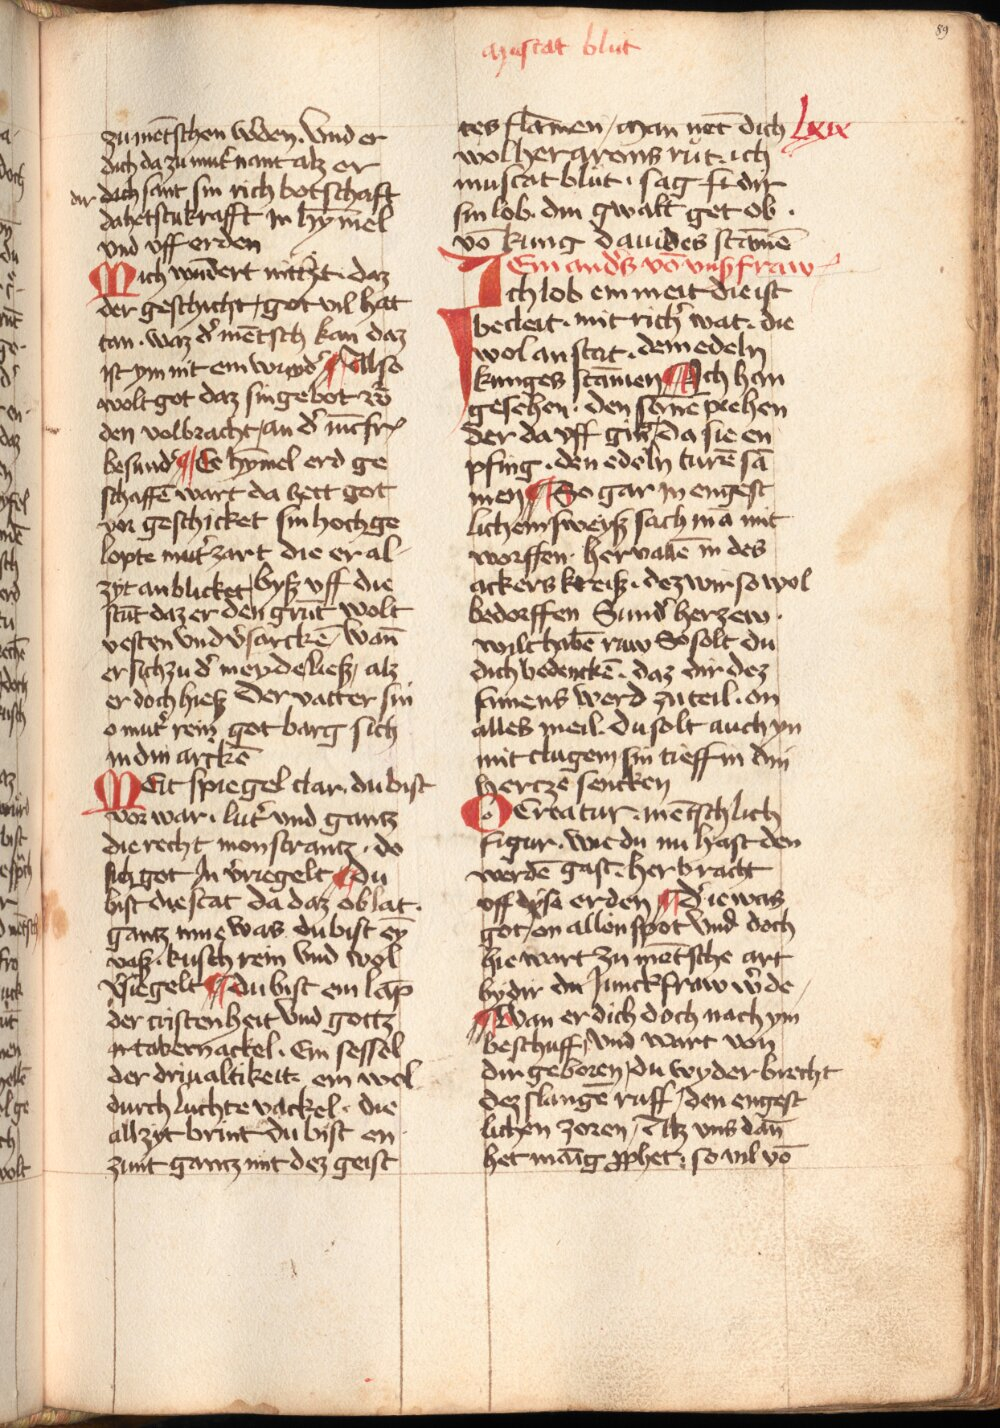 89
muscat blut
Lxix
zu mētschen w'den. Vnd er
dich da zu mut' nant alz er
dir dich sant sin rich botschaft
da hetstu krafft In hÿmel
vnd vff erden
Mich wūdert nitzt. daz
der geschicht / got vil hat
tan. waz d' mētsch kan daz
ist ym nit ein wund' ¶ Also
wolt got daz sin gebot
den volbracht / an d'
besund' ¶ Ee hÿmel erd ge
schaffē wart da hett got
vor geschicket sin hochge
lopte mut' zart die er al-
zyt anblicket / byß vff die
stūt daz er den grūt wolt
vesten vnd v'sarckē wan̄
er sich zu d' meyde ließ / alz
er doch hieß der vatter sin
o mut' rein got barg sich
in din arckē
Meit spiegel clar. du bist
vor war. lut' vnd gantz
die recht monstrantz. do
sich got In v'riegelt ¶ du
bist die stat da daz oblat.
gantz inne was du bist eȳ
vaß. kusch rein vnd wol
v'siegelt ¶ du bist ein lāp
der cristenheit vnd gottz
tabernackel. Ein sessel
der driualtikeit. ein wol
durch luchte vackel. die
allzyt brint du bist en
zunt gantz mit dez geist
tes flāmen / man nēt dich
wol her arons růt. ich
muscat blůt. sag fr dir
sin lob. din gwalt get ob.
vō kung dauides stāmē
Ein and's vō vns' fraw
Ich lob ein meit die ist
becleit. mit rich' wat. die
wol an stat. dem edeln
kunges stāmen ¶ Ich han
gesehen. den schinē prehen
der da vff gink / da sie en
pfing. den edeln turē sā
men ¶ So gar in engest
lichem sweyß sach mā mit
worffen. her vallē in des
ackers kreiß. dez wir so wol
bedorffen Sund' herzew.
wilt habē raw So solt du
dich bedenckē. daz dir dez
samens werd zu teil. on
alles meil. du solt auch yn
mit clugem sin tieff in din
hertze sencken
O Creatur. mētschlich
figur. wie du nu hast den
werdē gast. her bracht
vff dyse erden ¶ d' ie was
got / on allen spot vnd doch
hie wart zu mētsche art
by dir du Junckfraw w'de /
¶ Wan er dich doch nach ym
beschuff / vnd wart von
dir geboren / du wyderbrecht
dez slangē ruff / den engest
lichen zoren / Alz vns dan̄
het māig ꝓphet: so vil vō